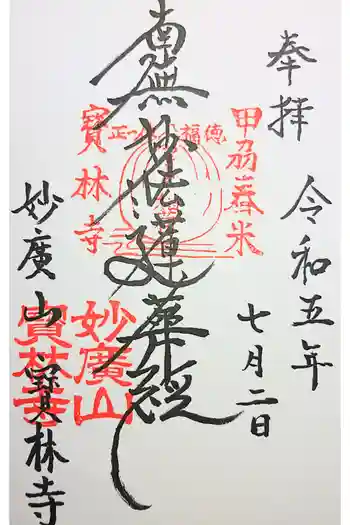 奉拝
令和五年
七月二日
南無妙法蓮華経
妙廣山
寶林寺
甲刕
米
福徳
正
寶林寺
妙廣山
寶林寺